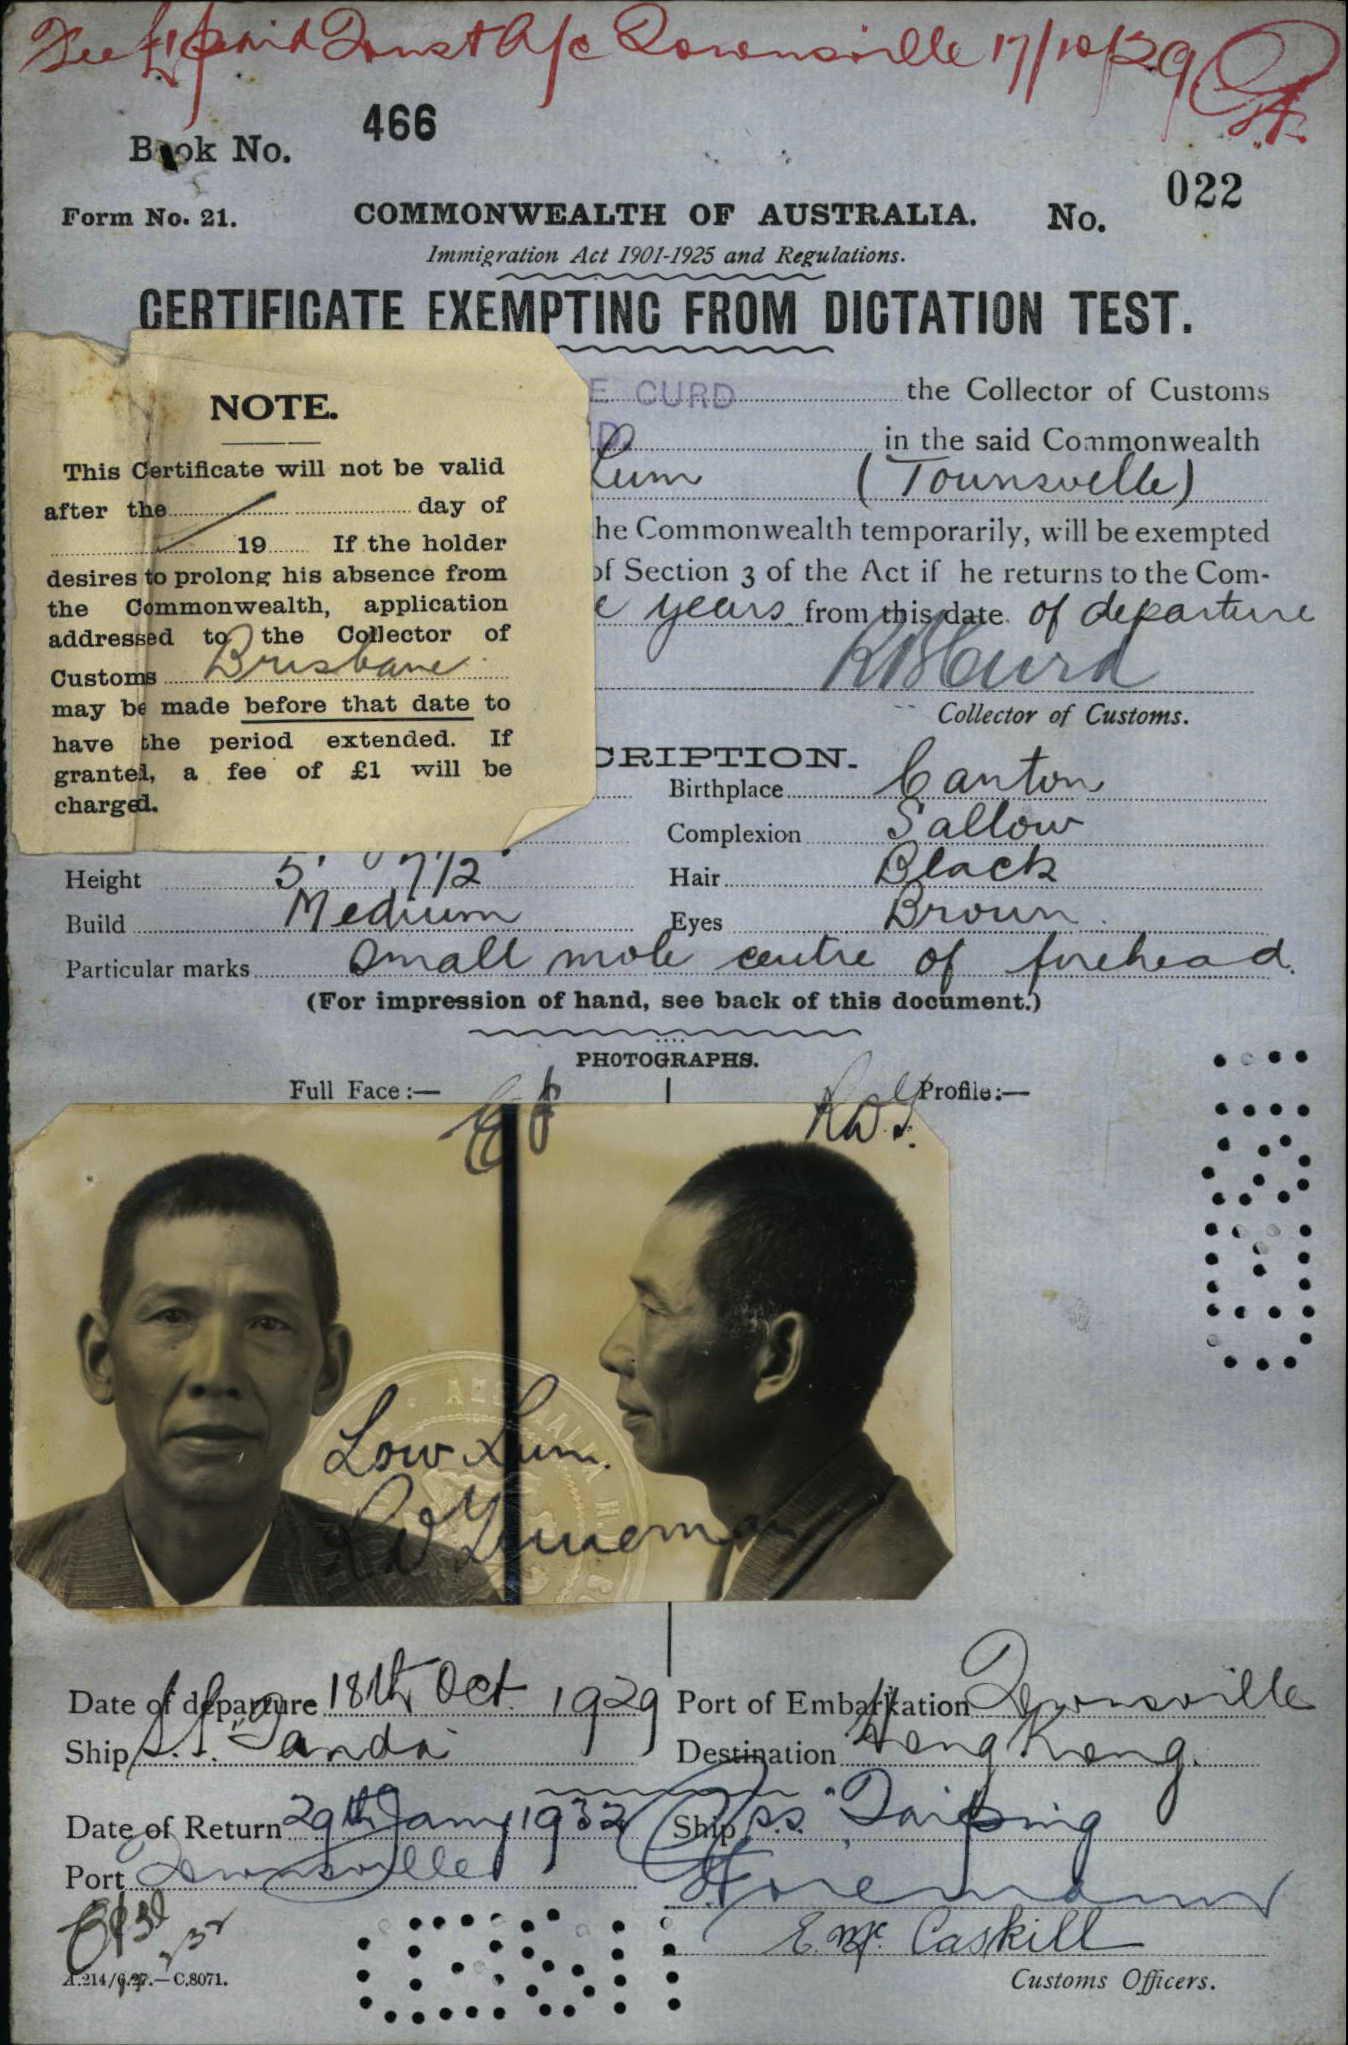 Fee £1 paid Trust A/c Townsville 17/10/29
466
Book No.
022
Form No. 21. COMMONWEALTH OF AUSTRALIA. No.
Immigration Act 1901-1925 and Regulations.
CERTIFICATE EXEMPTING FROM DICTATION TEST.
E CURD the Collector of Customs
in the said Commonwealth
Lum (Townsville)
he Commonwealth temporarily, will be exempted
of Section 3 of the Act if he returns to the Com-
e years from this date of departure
R B Curd
Collector of Customs.
NOTE.
This Certificate will not be valid
after the day of
19 If the holder
desires to prolong his absence from
the Commonwealth, application
addressed to the Collector of
Customs Brisbane
may be made before that date to
have the period extended. If
granted, a fee of £1 will be
charged.
CRIPTION.
Birthplace Canton
Complexion Sallow
Height 5' 7 1/2" Hair Black
Build Medium Eyes Brown
Particular marks Small mole centre of forehead.
(For impression of hand, see back of this document.)
PHOTOGRAPHS.
Full Face:— Profile:—
Low Lum.
Date of departure 18th Oct. 1929 Port of Embarkation Townsville
Ship S.S. "Tanda" Destination Hong Kong.
Date of Return 29th Jany 1932 Ship s.s. "Taiping
Port Townsville
E. Mc. Caskill
A.214/6.27.—C.8071. Customs Officers.